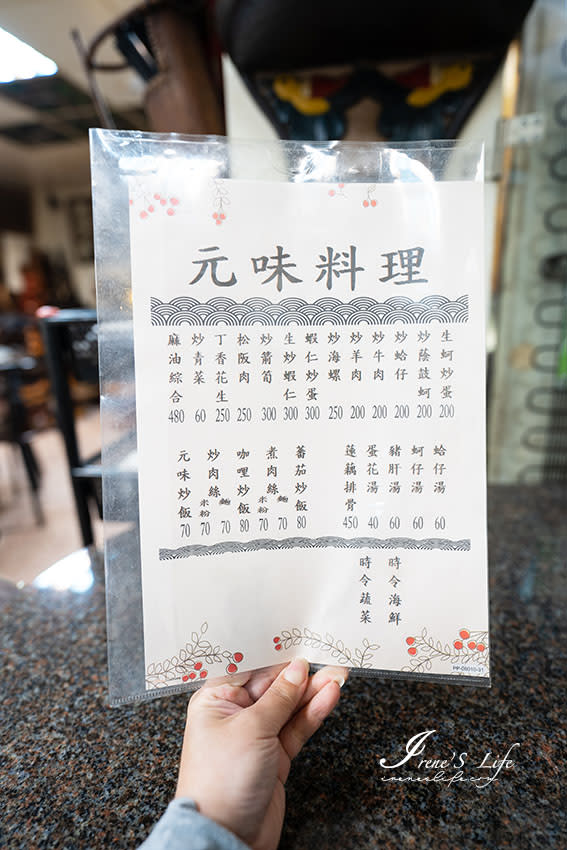 元味料理
生蚵炒蛋 200
炒蔭鼓蚵 200
炒蛤仔 200
炒牛肉 200
炒羊肉 200
炒海螺 250
蝦仁炒蛋 300
生炒蝦仁 300
炒箭筍 300
松阪肉 250
丁香花生 250
炒青菜 60
麻油綜合 480
蛤仔湯 60
蚵仔湯 60
豬肝湯 60
蛋花湯 40
蓮藕排骨 450
蕃茄炒飯 80
煮肉絲 麵 70 米粉 70
咖哩炒飯 80
炒肉絲 麵 70 米粉 70
元味炒飯 70
時令海鮮
時令蔬菜
PP-08010-31
Irene'S Life
ireneslife.cry